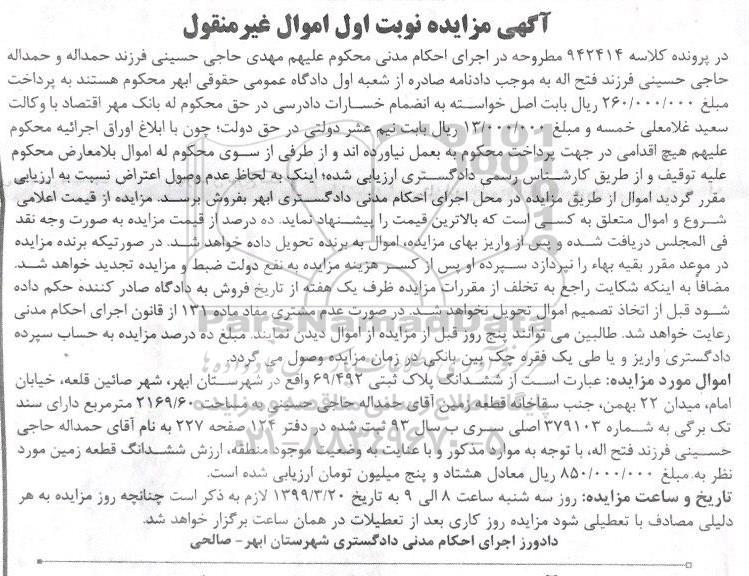 آگهی مزایده نوبت اول اموال غیرمنقول
در پرونده کلاسه ۹۴۲۴۱۴ مطروحه در اجرای احکام مدنی محکوم علیهم مهدی حاجی حسینی فرزند حمداله و حمداله
حاجی حسینی فرزند فتح اله به موجب دادنامه صادره از شعبه اول دادگاه عمومی حقوقی ابهر محکوم هستند به پرداخت
مبلغ ۲۶۰/۰۰۰/۰۰۰ ریال بابت اصل خواسته به انضمام خسارات دادرسی در حق محکوم له بانک مهر اقتصاد با وکالت
سعید غلامعلی خمسه و مبلغ ۱۳/۰۰۰/۰۰۰ ریال بابت نیم عشر دولتی در حق دولت؛ چون با ابلاغ اوراق اجرائیه محکوم
علیهم هیچ اقدامی در جهت پرداخت محکوم به بعمل نیاورده اند و از طرفی از سوی محکوم له اموال بلامعارض محکوم
علیه توقیف و از طریق کارشناس رسمی دادگستری ارزیابی شده؛ اینک به لحاظ عدم وصول اعتراض نسبت به ارزیابی
مقرر گردید اموال از طریق مزایده در محل اجرای احکام مدنی دادگستری ابهر بفروش برسد. مزایده از قیمت اعلامی
شروع و اموال متعلق به کسی است که بالاترین قیمت را پیشنهاد نماید. ده درصد از قیمت مزایده به صورت وجه نقد
فی المجلس دریافت شده و پس از واریز بهای مزایده، اموال به برنده تحویل داده خواهد شد. در صورتیکه برنده مزایده
در موعد مقرر بقیه بهاء را نپردازد سپرده او پس از کسر هزینه مزایده به نفع دولت ضبط و مزایده تجدید خواهد شد.
مضافاً به اینکه شکایت راجع به تخلف از مقررات مزایده ظرف یک هفته از تاریخ فروش به دادگاه صادر کننده حکم داده
شود قبل از اتخاذ تصمیم اموال تحویل نخواهد شد. در صورت عدم مشتری مفاد ماده ۱۳۱ از قانون اجرای احکام مدنی
رعایت خواهد شد. طالبین می توانند پنج روز قبل از مزایده از اموال دیدن نمایند. مبلغ ده درصد مزایده به حساب سپرده
دادگستری واریز و یا طی یک فقره چک بین بانکی در زمان مزایده وصول می گردد.
اموال مورد مزایده: عبارت است از ششدانگ پلاک ثبتی ۶۹/۴۹۲ واقع در شهرستان ابهر، شهر صائین قلعه، خیابان
امام، میدان ۲۲ بهمن، جنب سقاخانه قطعه زمین آقای حمداله حاجی حسینی به مساحت ۲۱۶۹/۶۰ مترمربع دارای سند
تک برگی به شماره ۳۷۹۱۰۳ اصلی سری ب سال ۹۳ ثبت شده در دفتر ۱۲۴ صفحه ۲۲۷ به نام آقای حمداله حاجی
حسینی فرزند فتح اله، با توجه به موارد مذکور و با عنایت به وضعیت موجود منطقه، ارزش ششدانگ قطعه زمین مورد
نظر به مبلغ ۸۵۰/۰۰۰/۰۰۰ ریال معادل هشتاد و پنج میلیون تومان ارزیابی شده است.
تاریخ و ساعت مزایده: روز سه شنبه ساعت ۸ الی ۹ به تاریخ ۱۳۹۹/۳/۲۰ لازم به ذکر است چنانچه روز مزایده به هر
دلیلی مصادف با تعطیلی شود مزایده روز کاری بعد از تعطیلات در همان ساعت برگزار خواهد شد.
دادورز اجرای احکام مدنی دادگستری شهرستان ابهر- صالحی
ParsNamadData
۰۲۱-۸۸۳۴۹۶۷۰-۵